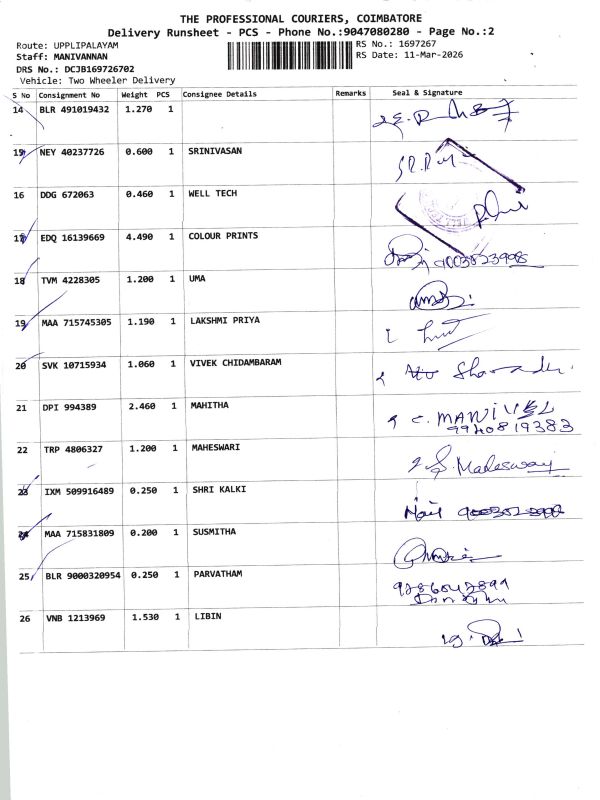 THE PROFESSIONAL COURIERS, COIMBATORE
Delivery Runsheet - PCS - Phone No.:9047080280 - Page No.:2
Route: UPPLIPALAYAM
RS No.: 1697267
Staff: MANIVANNAN
RS Date: 11-Mar-2026
DRS No.: DCJB169726702
Vehicle: Two Wheeler Delivery
S No Consignment No Weight PCS Consignee Details Remarks Seal & Signature
14 BLR 491019432 1.270 1
15 NEY 40237726 0.600 1 SRINIVASAN
16 DDG 672063 0.460 1 WELL TECH
17 EDQ 16139669 4.490 1 COLOUR PRINTS
18 TVM 4228305 1.200 1 UMA
19 MAA 715745305 1.190 1 LAKSHMI PRIYA
20 SVK 10715934 1.060 1 VIVEK CHIDAMBARAM
21 DPI 994389 2.460 1 MAHITHA C. MANIVEL
9940819383
22 TRP 4806327 1.200 1 MAHESWARI
23 IXM 509916489 0.250 1 SHRI KALKI
24 MAA 715831809 0.200 1 SUSMITHA
25 BLR 9000320954 0.250 1 PARVATHAM
26 VNB 1213969 1.530 1 LIBIN